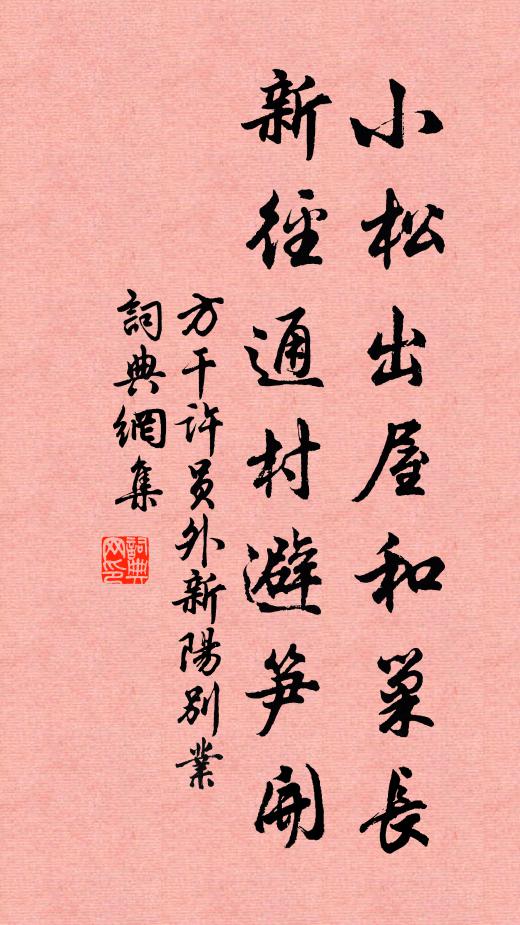 小松出屋和巢長
新徑通村避笋開
方干许员外新陽別業
詞典網集
詞典网印